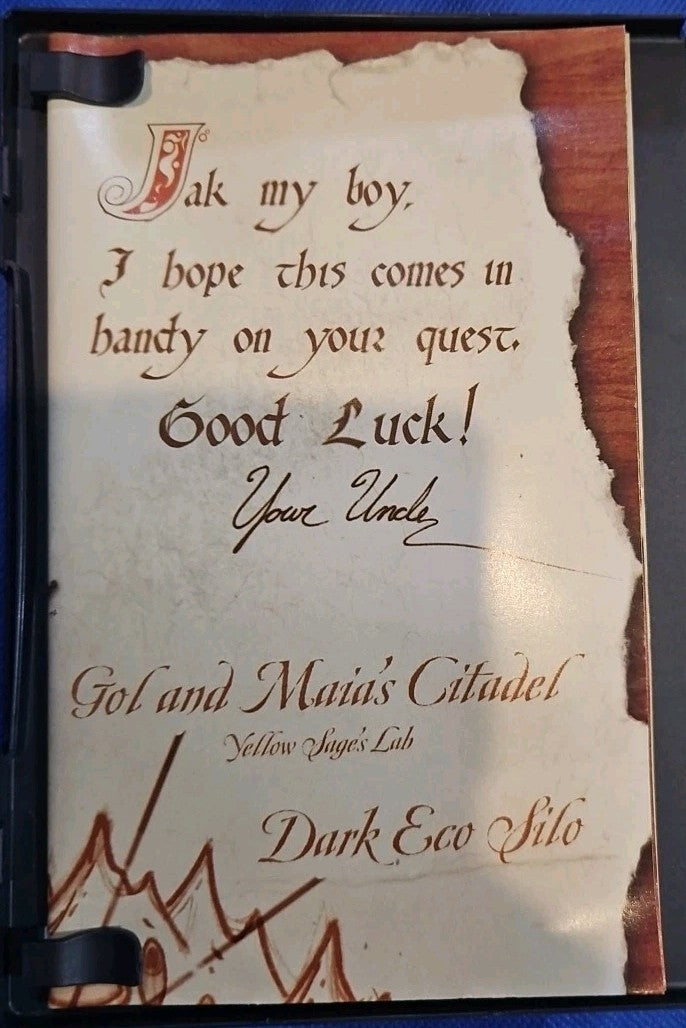 Jak my boy,
I hope this comes in
handy on your quest.
Good Luck!
Your Uncle
Gol and Maia's Citadel
Yellow Sage's Lab
Dark Eco Silo